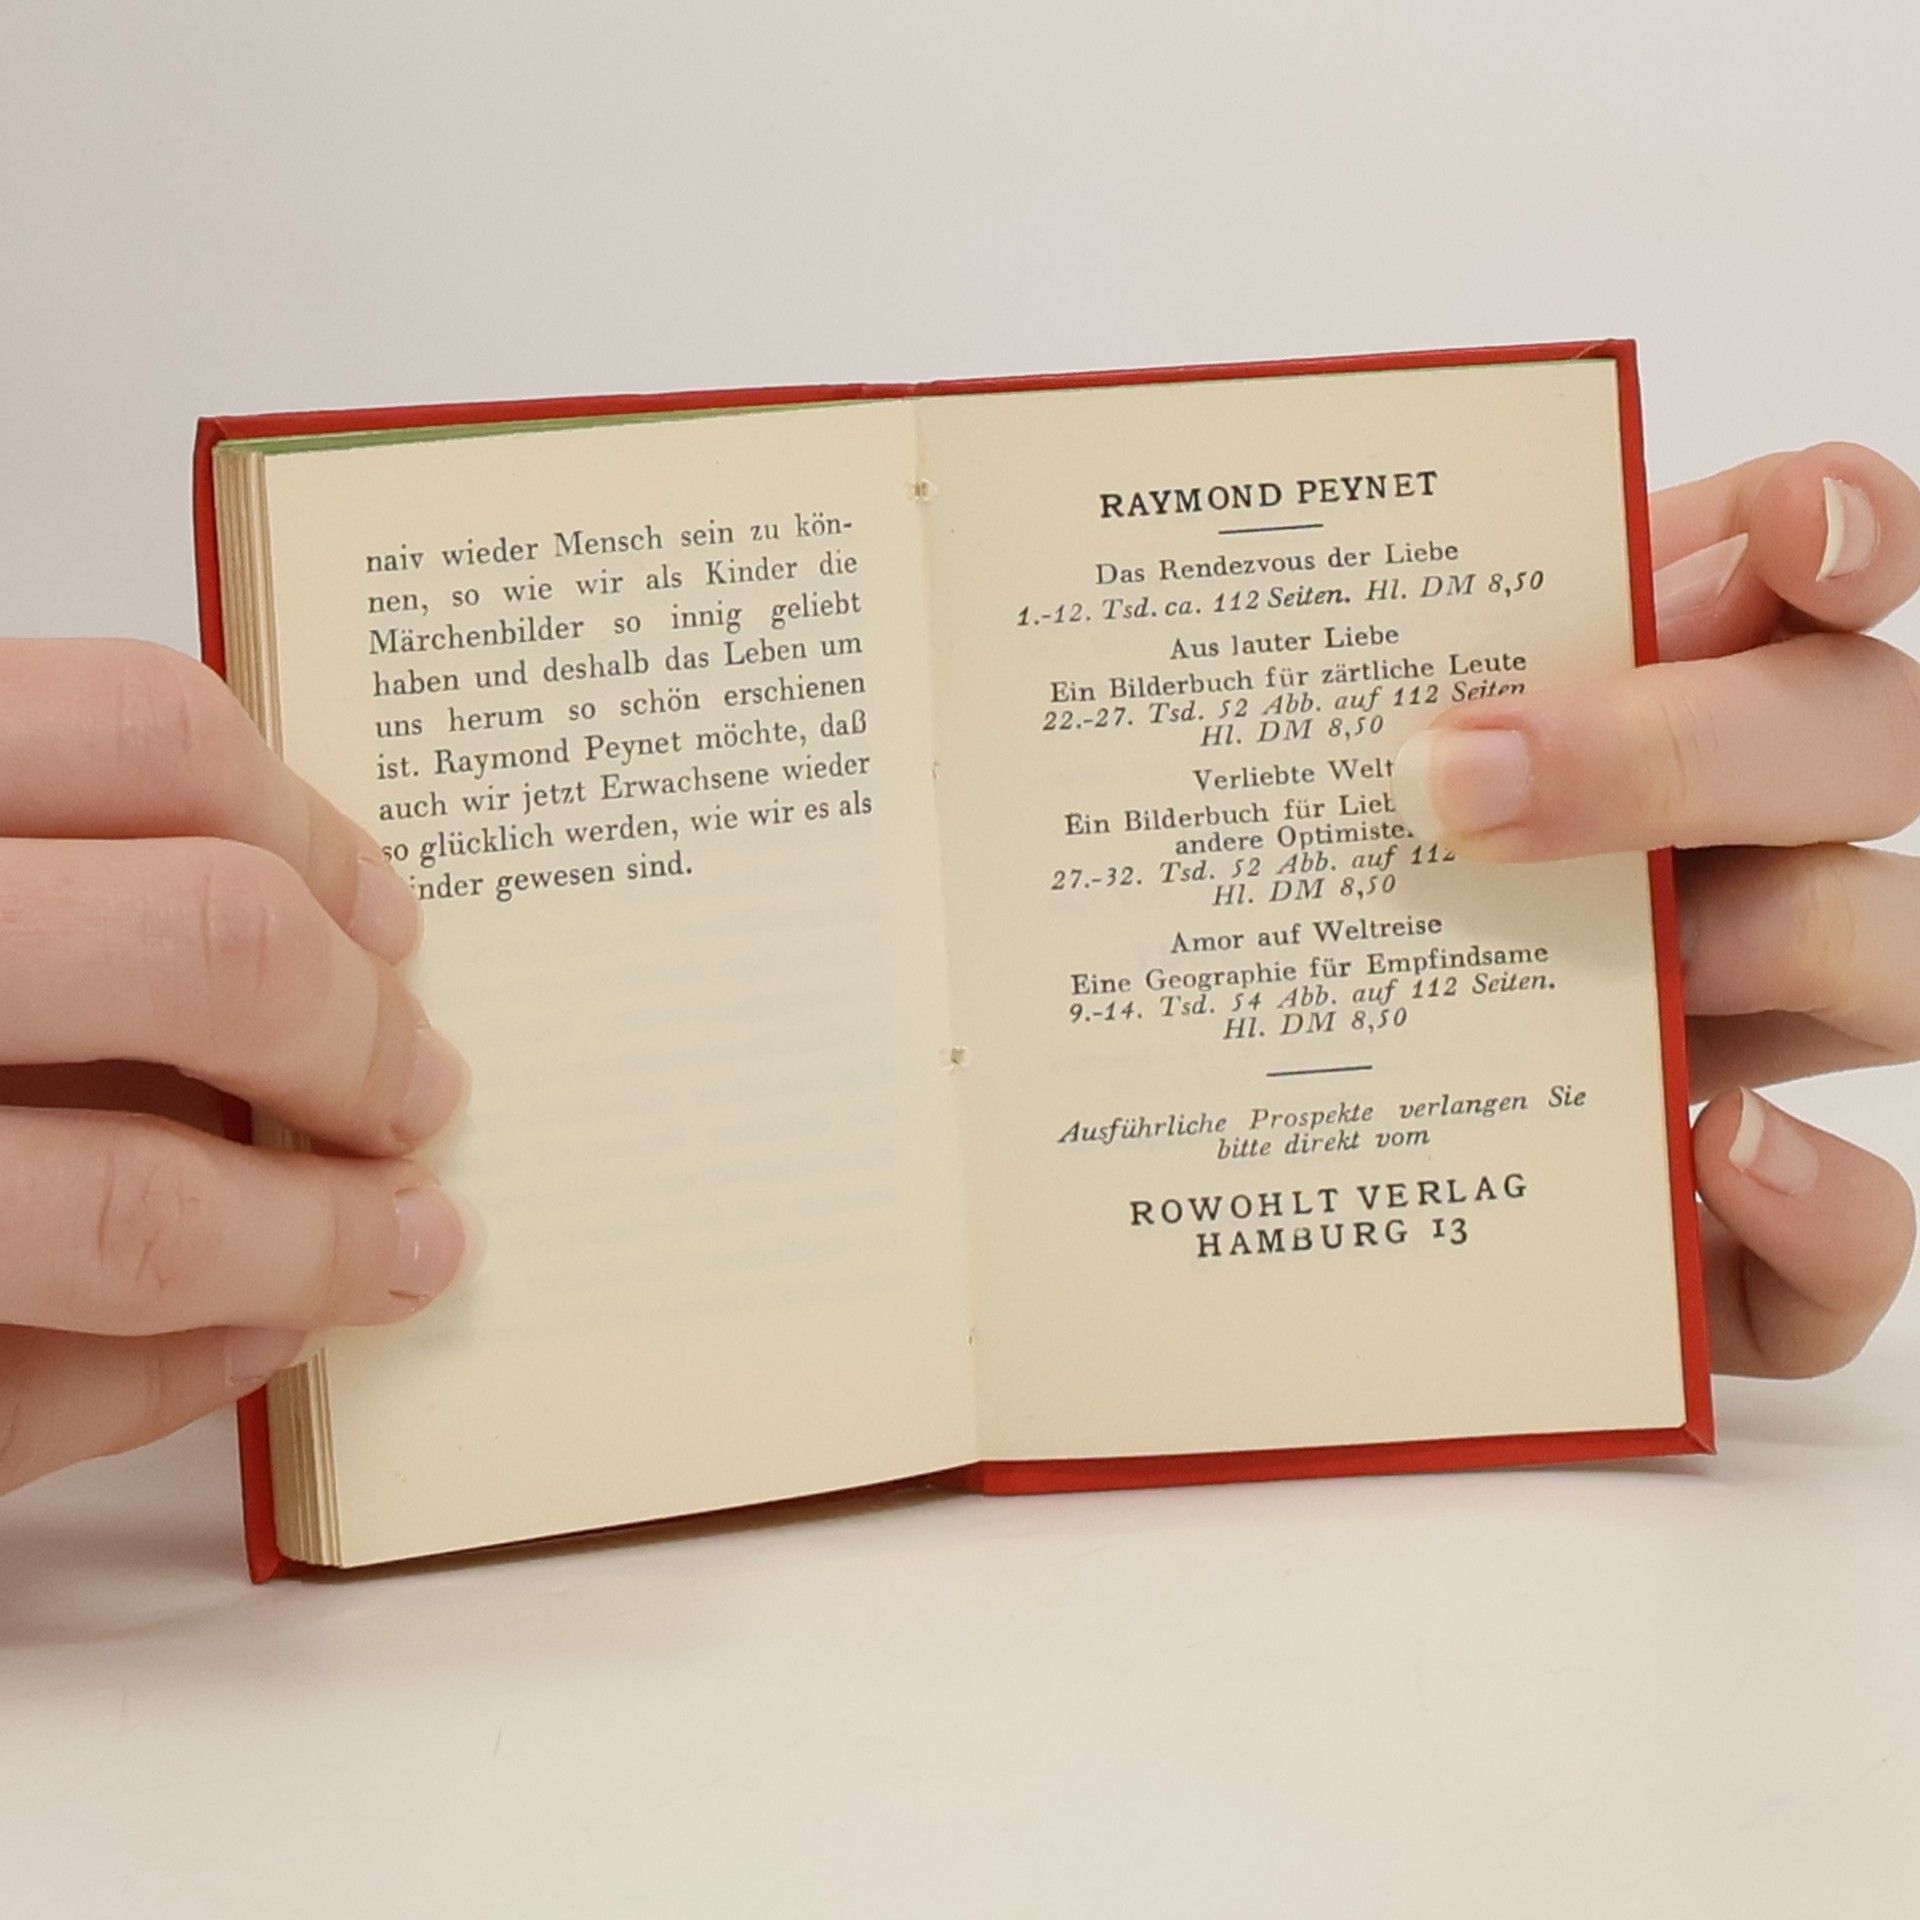 naiv wieder Mensch sein zu kön-
nen, so wie wir als Kinder die
Märchenbilder so innig geliebt
haben und deshalb das Leben um
uns herum so schön erschienen
ist. Raymond Peynet möchte, daß
auch wir jetzt Erwachsene wieder
so glücklich werden, wie wir es als
gewesen sind.
RAYMOND PEYNET
Das Rendezvous der Liebe
1.-12. Tsd. ca. 112 Seiten. Hl. DM 8,50
Aus lauter Liebe
Ein Bilderbuch für zärtliche Leute
22.-27. Tsd. 52 Abb. auf 112 Seiten
Hl. DM 8,50
Verliebte Welt
Ein Bilderbuch für
andere
27.-32. Tsd. 52 Abb. auf 112
Hl. DM 8,50
Amor auf Weltreise
Eine Geographie für Empfindsame
9.-14. Tsd. 54 Abb. auf 112 Seiten.
Hl. DM 8,50
Ausführliche Prospekte verlangen Sie
bitte direkt vom
ROWOHLT VERLAG
HAMBURG 13